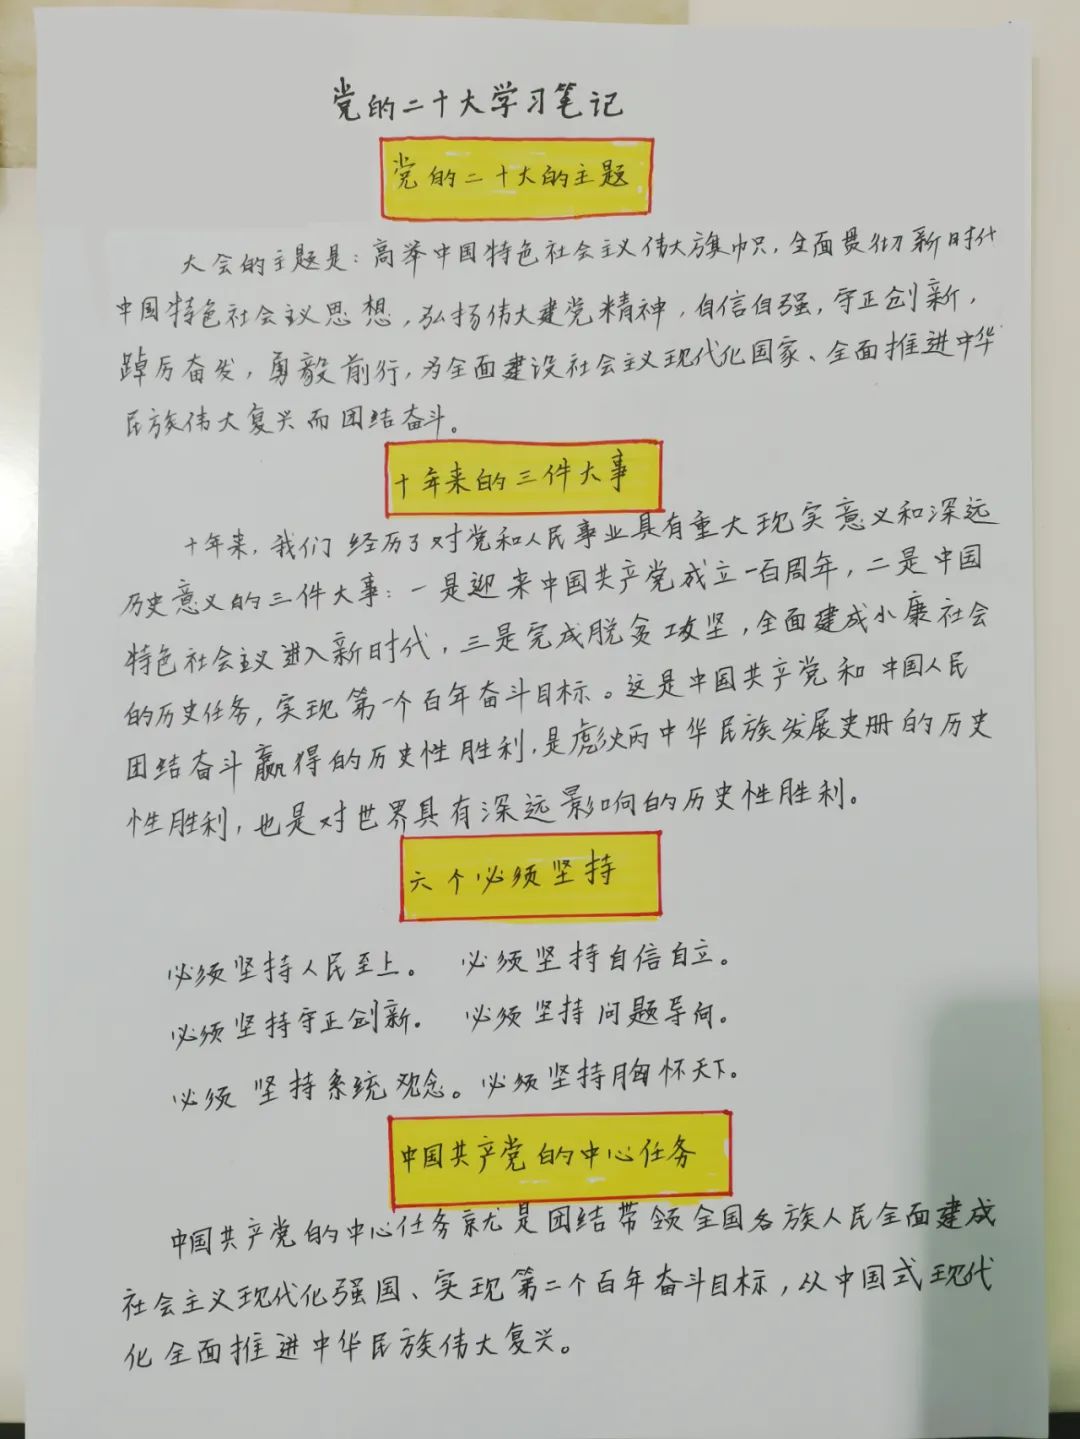 党的二十大学习笔记
党的二十大的主题
大会的主题是：高举中国特色社会主义伟大旗帜，全面贯彻新时代
中国特色社会主义思想，弘扬伟大建党精神，自信自强，守正创新，
踔厉奋发，勇毅前行，为全面建设社会主义现代化国家、全面推进中华
民族伟大复兴而团结奋斗。
十年来的三件大事
十年来，我们经历了对党和人民事业具有重大现实意义和深远
历史意义的三件大事：一是迎来中国共产党成立一百周年，二是中国
特色社会主义进入新时代，三是完成脱贫攻坚，全面建成小康社会
的历史任务，实现第一个百年奋斗目标。这是中国共产党和中国人民
团结奋斗赢得的历史性胜利，是彪炳中华民族发展史册的历史
性胜利，也是对世界具有深远影响的历史性胜利。
六个必须坚持
必须坚持人民至上。 必须坚持自信自立。
必须坚持守正创新。 必须坚持问题导向。
必须坚持系统观念。必须坚持胸怀天下。
中国共产党的中心任务
中国共产党的中心任务就是团结带领全国各族人民全面建成
社会主义现代化强国、实现第二个百年奋斗目标，以中国式现代
化全面推进中华民族伟大复兴。